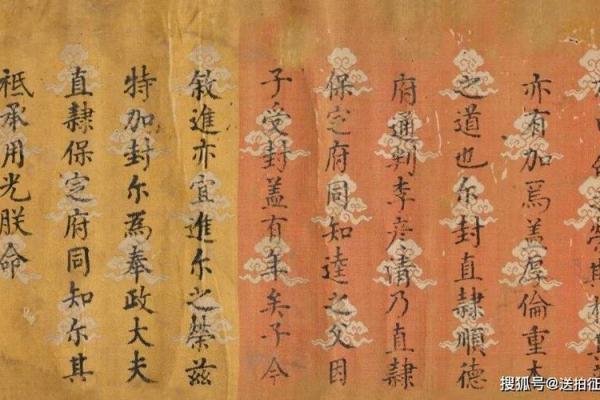 榮其
亦有加焉蓋厚倫重本
之道也尔封直隸順德
府通判李彥清乃直隸
保定府同知逵之父因
子受封盖有年矣子今
敘進亦宜進尔之榮兹
特加封尔焉奉政大夫
直隸保定府同知尔其
祗承用光朕命
搜狐号@送拍征